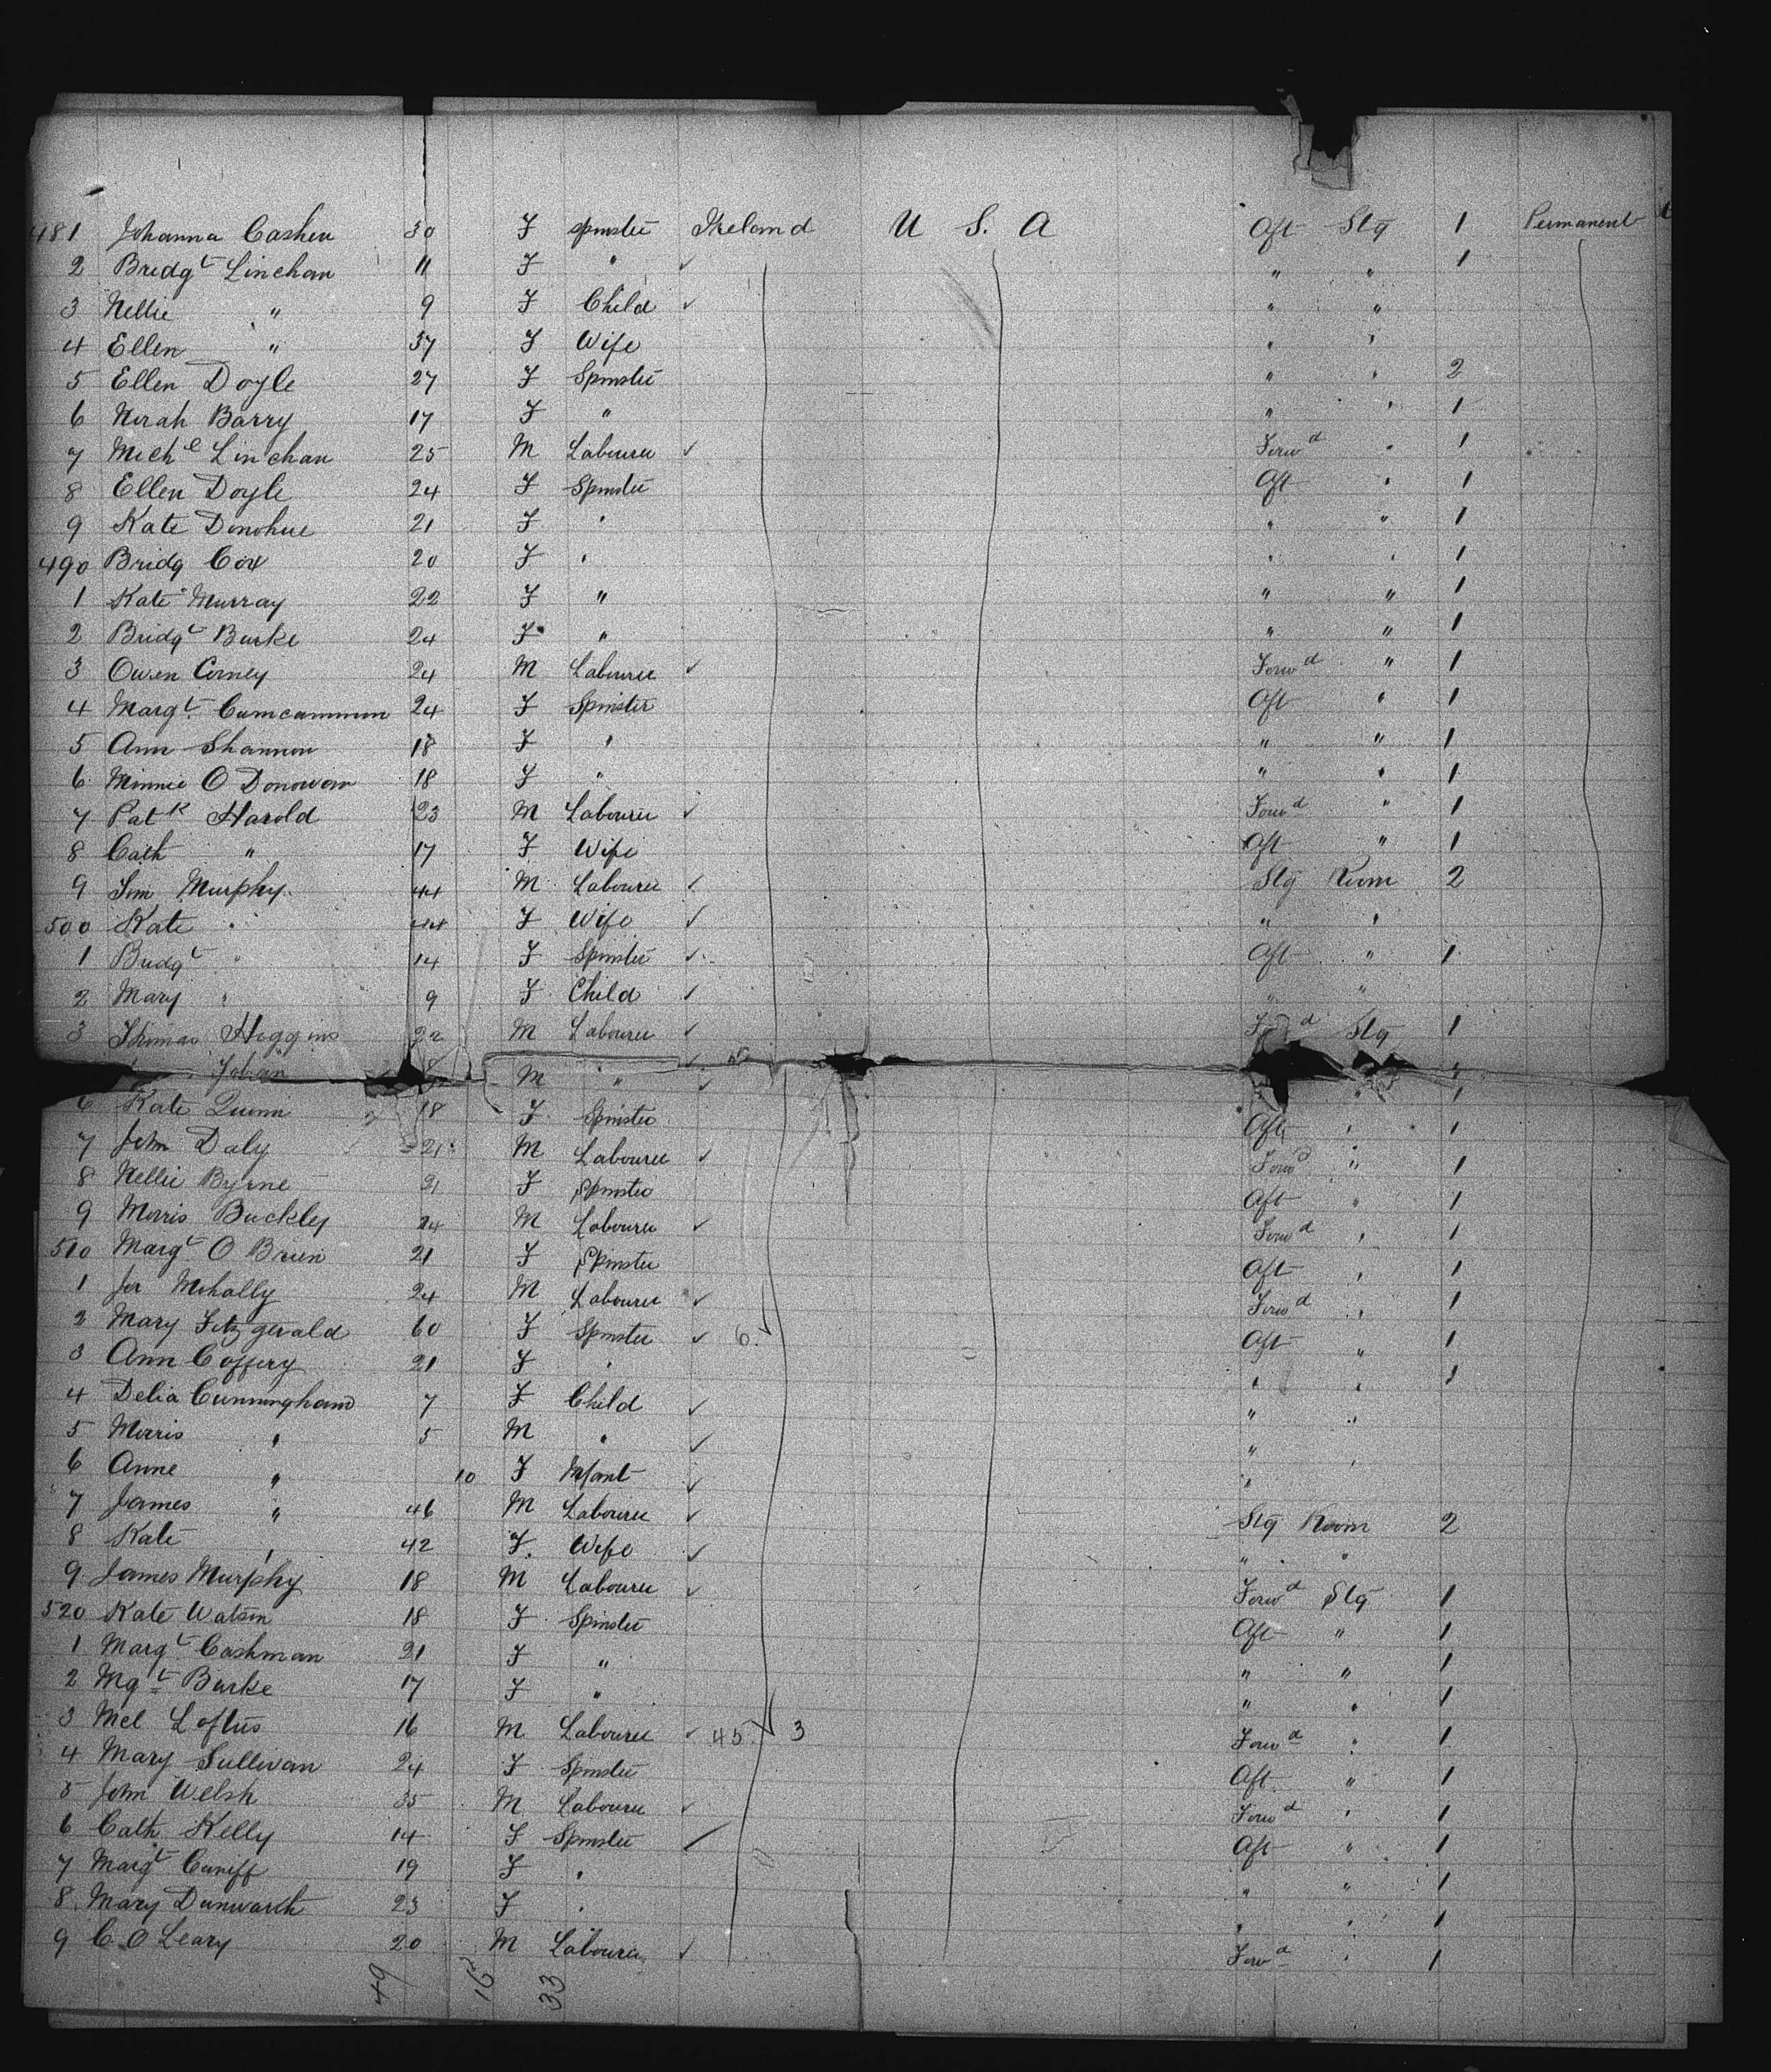 481 Johanna Cashen 30 F Spinster Ireland U. S. A Aft Stg 1 Permanent
2 Bridgt Linehan 11 F " ✓ " " 1
3 Nellie " 9 F Child ✓ " "
4 Ellen " 37 F Wife " "
5 Ellen Doyle 27 F Spinster " " 2
6 Norah Barry 17 F " " " 1
7 Michl Linehan 25 M Labourer ✓ Forwd " 1
8 Ellen Doyle 24 F Spinster Aft " 1
9 Kate Donohue 21 F " " " 1
490 Bridg Cox 20 F " " " 1
1 Kate Murray 22 F " " " 1
2 Bridgt Burke 24 F " " " 1
3 Owen Corney 24 M Labourer ✓ Forwd " 1
4 Margt 24 F Spinster Aft " 1
5 Ann Shannon 18 F " " " 1
6 Minnie O Donovan 18 F " " " 1
7 Patk Harold 23 M Labourer ✓ Forwd " 1
8 Cath " 17 F Wife Aft " 1
9 Murphy 44 M Labourer ✓ Stg Room 2
500 Kate " 44 F Wife ✓ " "
1 Bridgt " 14 F Spinster ✓ Aft " 1
2 Mary " 9 F Child ✓ " "
3 Thomas Higgins 22 M Labourer ✓ Forwd Stg 1
M " ✓ " 1
6 Kate Quinn 18 F Spinster Aft " 1
7 John Daly 21 M Labourer ✓ Forwd " 1
8 Nellie Byrne 21 F Spinster Aft " 1
9 Morris Buckley 24 M Labourer ✓ Forwd " 1
510 Margt O Brien 21 F Spinster Aft " 1
1 Jer Mohally 24 M Labourer ✓ Forwd " 1
2 Mary Fitzgerald 60 F Spinster ✓ 6 Aft " 1
3 Ann Coffery 21 F " " " 1
4 Delia Cunningham 7 F Child ✓ " "
5 Morris " 5 M " ✓ " "
6 Anne " 10 F Infant ✓ "
7 James " 46 M Labourer ✓ Stg Room 2
8 Kate " 42 F Wife ✓ " "
9 James Murphy 18 M Labourer ✓ Forwd Stg 1
520 Kate Watson 18 F Spinster Aft " 1
1 Margt Cashman 21 F " " " 1
2 Mgt Burke 17 F " " " 1
3 Mcl Loftus 16 M Labourer ✓ 45 3 Forwd " 1
4 Mary Sullivan 24 F Spinster Aft " 1
5 John Welsh 35 M Labourer ✓ Forwd " 1
6 Cath Kelly 14 F Spinster ✓ Aft " 1
7 Margt Cuniff 19 F " " " 1
8 Mary Dunwarth 23 F " " " 1
9 C. O Leary 20 M Labourer ✓ Forwd " 1
49 16 33